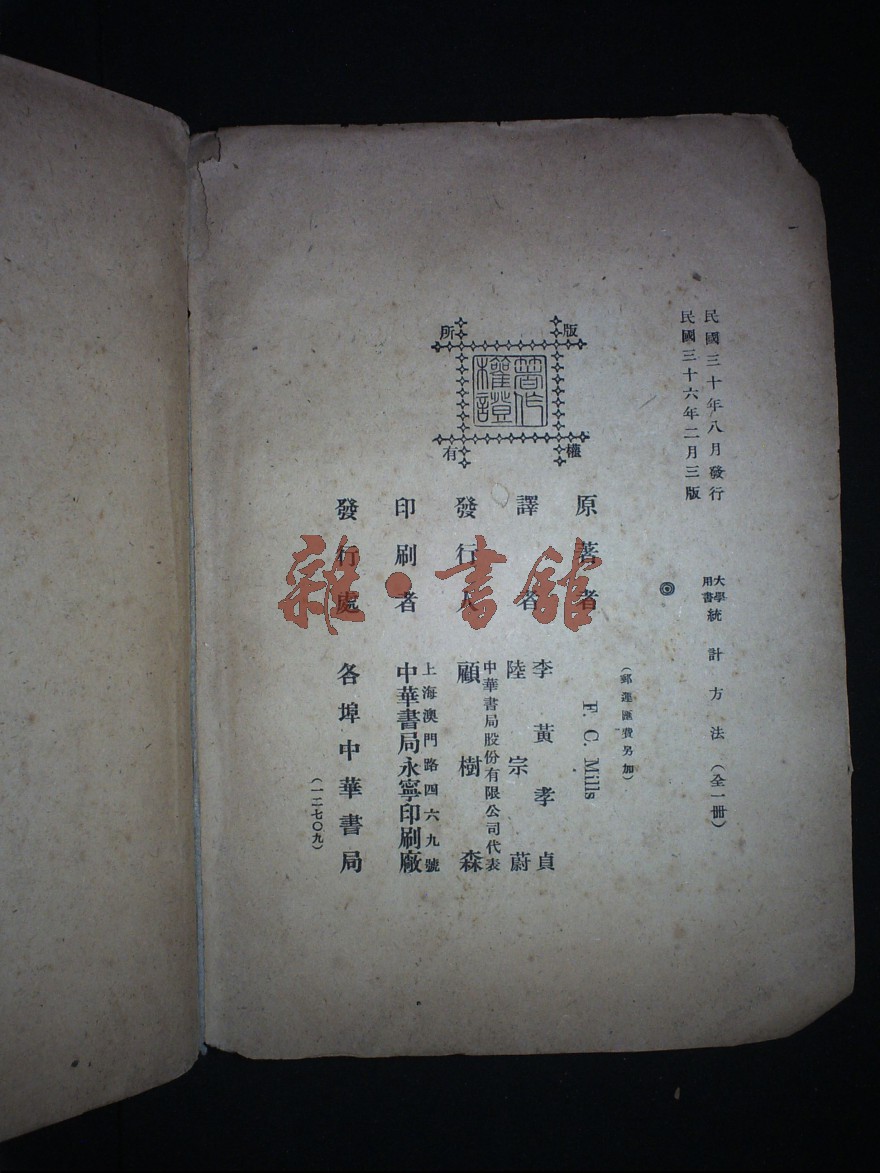 民國三十年八月發行
民國三十六年二月三版
大學用書 統計方法(全一冊)
◎
(郵運匯費另加)
原著者 F. C. Mills
譯者 李黃孝貞
陸宗蔚
發行人 中華書局股份有限公司代表
顧樹森
印刷者 上海澳門路四六九號
中華書局永寧印刷廠
發行處 各埠中華書局
(一二七〇九)
版權所有
著作權證
雜·書館